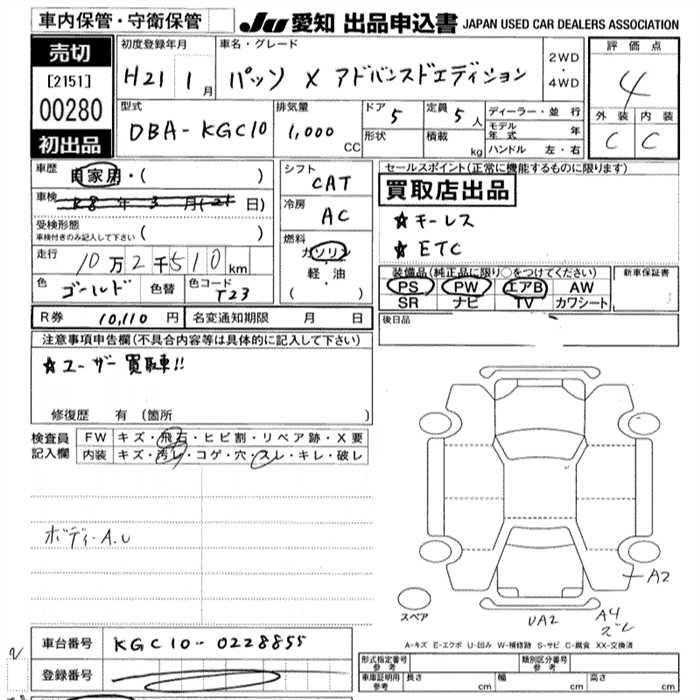 車内保管・守衛保管
JU 愛知 出品申込書 JAPAN USED CAR DEALERS ASSOCIATION
売切
[2151]
00280
初出品
初度登録年月
H21 1月
車名・グレード
パッソ X アドバンスドエディション
2WD
・
4WD
評価点
4
外装 内装
C C
型式
DBA-KGC10
排気量
1,000 CC
ドア 5
定員 5人
形状
積載 kg
ディーラー・並行
モデル年式 年
ハンドル 左・右
車歴
自家用・( )
車検
R8年3月(21日)
受検形態
車検付きのみ記入して下さい ( )
走行
10万2千510km
色 ゴールド 色替 色コード T23
シフト
CAT
冷房
AC
燃料
ガソリン
軽・油
( )
セールスポイント(正常に機能するものに限ります)
買取店出品
★キーレス
★ETC
装備品(純正品に限り○をつけてください)
PS PW エアB AW
SR ナビ TV カワシート
新車保証書
後日品
R券 10,110円 名変通知期限 月 日
注意事項申告欄(不具合内容等は具体的に記入して下さい)
★ユーザー買取車!!
修復歴 有(箇所 )
検査員記入欄
FW キズ・飛石・ヒビ割・リペア跡・X要
内装 キズ・汚レ・コゲ・穴・スレ・キレ・破レ
ボディ・A.U
スペア
A2
UA2
A4
A-キズ E-エクボ U-凹み W-補修跡 S-サビ C-腐食 XX-交換済
車台番号 KGC10-0228855
登録番号
形式指定番号参考
類別区分番号参考
車庫証明用参考 長さ cm 幅 cm 高さ cm